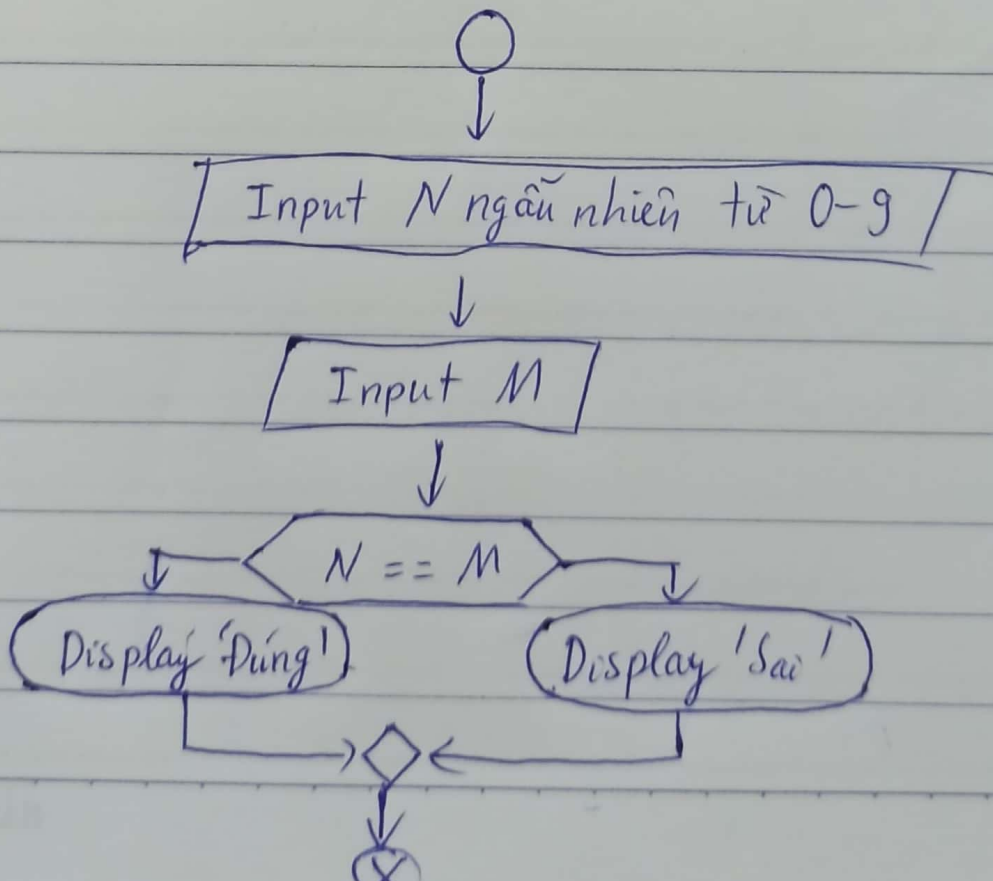 Input N ngẫu nhiên từ 0-9
Input M
N == M
Display 'Đúng'
Display 'Sai'